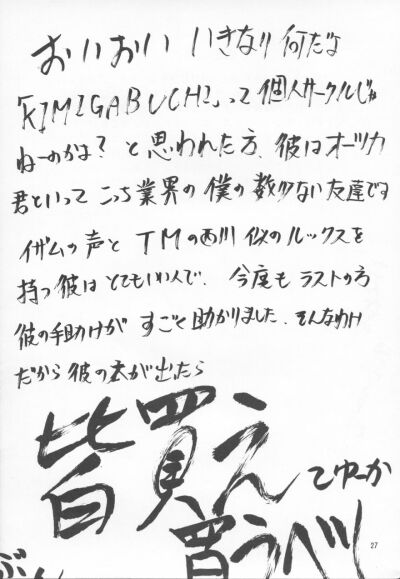 おいおい いきなり何だよ
「KIMIGABUCHI」って個人サークルじゃ
ねーのかよ？と思われた方、彼はオーツカ
君といって こっち業界の僕の数少ない友達です
イザムの声と TMの西川 似のルックスを
持つ彼は とてもいい人で、今度も ラストの方
彼の手助けが すごく助かりました。そんなわけ
だから彼の本が出たら
皆買え
てゆーか
買うべし
ぶん
27